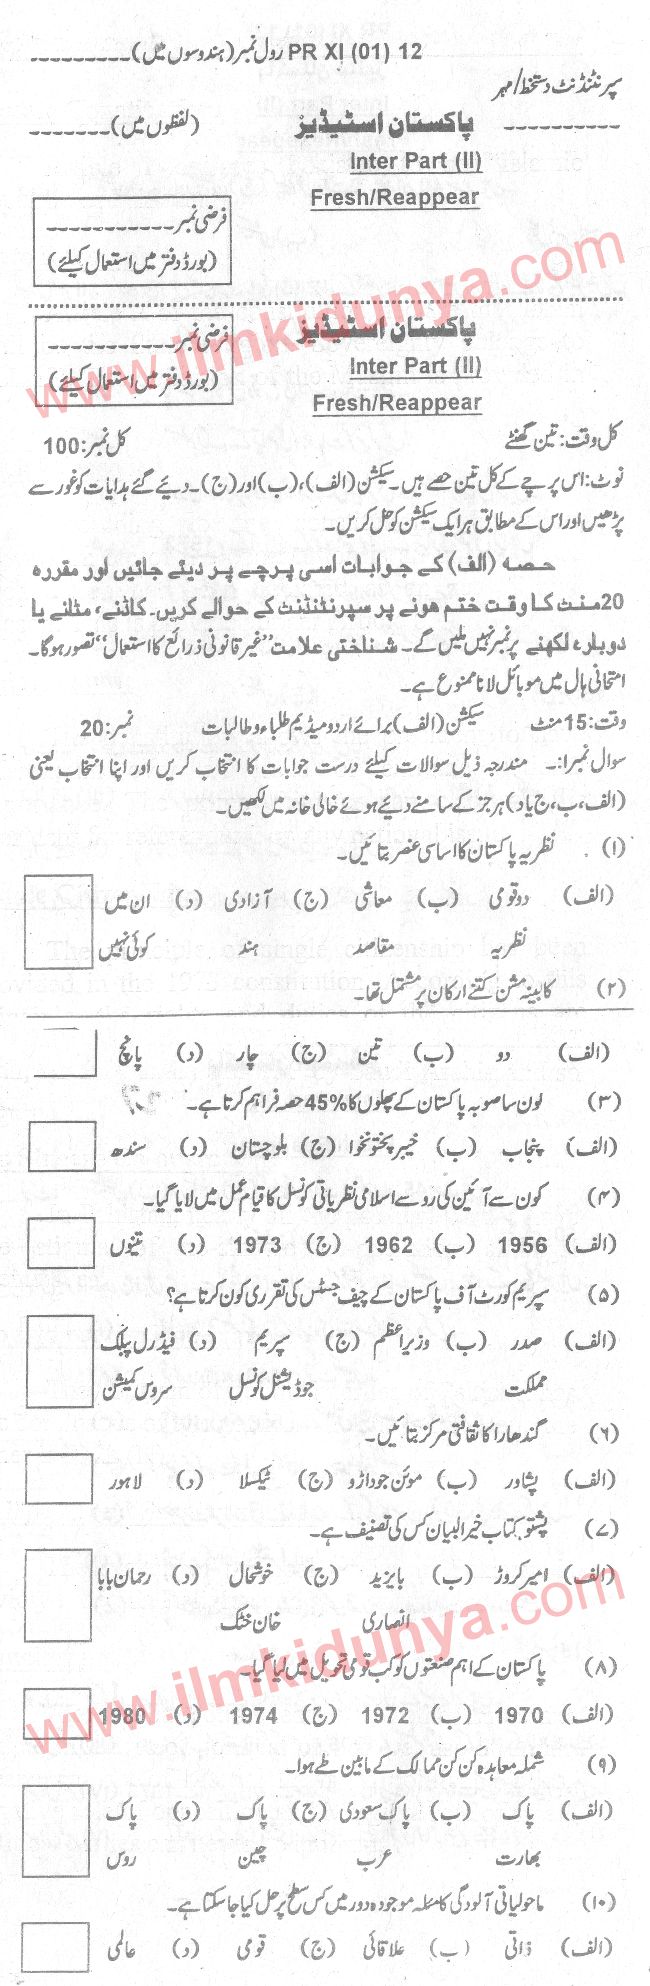 PR XI (01) 12 رول نمبر (ہندوسوں میں)----------
سپرنٹنڈنٹ دستخط/مہر
---------- پاکستان اسٹیڈیز (لفظوں میں)-------
Inter Part (II)
Fresh/Reappear
فرضی نمبر-----------
(بورڈ دفتر میں استعمال کیلئے)
پاکستان اسٹیڈیز
فرضی نمبر-----------
Inter Part (II)
(بورڈ دفتر میں استعمال کیلئے)
Fresh/Reappear
کل وقت: تین گھنٹے کل نمبر: 100
نوٹ: اس پرچے کے کل تین حصے ہیں۔ سیکشن (الف)، (ب) اور (ج)۔ دیئے گئے ہدایات کو غور سے
پڑھیں اور اس کے مطابق ہر ایک سیکشن کو حل کریں۔
حصہ (الف) کے جوابات اسی پرچے پر دیئے جائیں اور مقررہ
20 منٹ کا وقت ختم ہونے پر سپرنٹنڈنٹ کے حوالے کریں۔ کاٹنے، مٹانے یا
دوبارہ لکھنے پر نمبر نہیں ملیں گے۔ شناختی علامت "غیر قانونی ذرائع کا استعمال" تصور ہوگا۔
امتحانی ہال میں موبائل لانا ممنوع ہے۔
وقت: 15 منٹ سیکشن (الف) برائے اردو میڈیم طلباء و طالبات نمبر: 20
سوال نمبر۱:۔ مندرجہ ذیل سوالات کیلئے درست جوابات کا انتخاب کریں اور اپنا انتخاب یعنی
(الف، ب، ج یا د) ہر جز کے سامنے دیئے ہوئے خالی خانہ میں لکھیں۔
(۱) نظریہ پاکستان کا اساسی عنصر بتائیں۔
(الف) دو قومی نظریہ (ب) معاشی مقاصد (ج) آزادی ہند (د) ان میں کوئی نہیں
(۲) کابینہ مشن کتنے ارکان پر مشتمل تھا۔
(الف) دو (ب) تین (ج) چار (د) پانچ
(۳) کون سا صوبہ پاکستان کے پھلوں کا 45% حصہ فراہم کرتا ہے۔
(الف) پنجاب (ب) خیبر پختونخوا (ج) بلوچستان (د) سندھ
(۴) کون سے آئین کی رو سے اسلامی نظریاتی کونسل کا قیام عمل میں لایا گیا۔
(الف) 1956 (ب) 1962 (ج) 1973 (د) تینوں
(۵) سپریم کورٹ آف پاکستان کے چیف جسٹس کی تقرری کون کرتا ہے؟
(الف) صدر مملکت (ب) وزیراعظم (ج) سپریم جوڈیشنل کونسل (د) فیڈرل پبلک سروس کمیشن
(۶) گندھارا کا ثقافتی مرکز بتائیں۔
(الف) پشاور (ب) موئن جوداڑو (ج) ٹیکسلا (د) لاہور
(۷) پشتو کتاب خیر البیان کس کی تصنیف ہے۔
(الف) امیر کروڑ (ب) بایزید انصاری (ج) خوشحال خان خٹک (د) رحمان بابا
(۸) پاکستان کے اہم صنعتوں کو کب قومی تحویل میں لیا گیا۔
(الف) 1970 (ب) 1972 (ج) 1974 (د) 1980
(۹) شملہ معاہدہ کن کن ممالک کے مابین طے ہوا۔
(الف) پاک بھارت (ب) پاک سعودی عرب (ج) پاک چین (د) پاک روس
(۱۰) ماحولیاتی آلودگی کا مسئلہ موجودہ دور میں کس سطح پر حل کیا جا سکتا ہے۔
(الف) ذاتی (ب) علاقائی (ج) قومی (د) عالمی
www.ilmkidunya.com
www.ilmkidunya.com